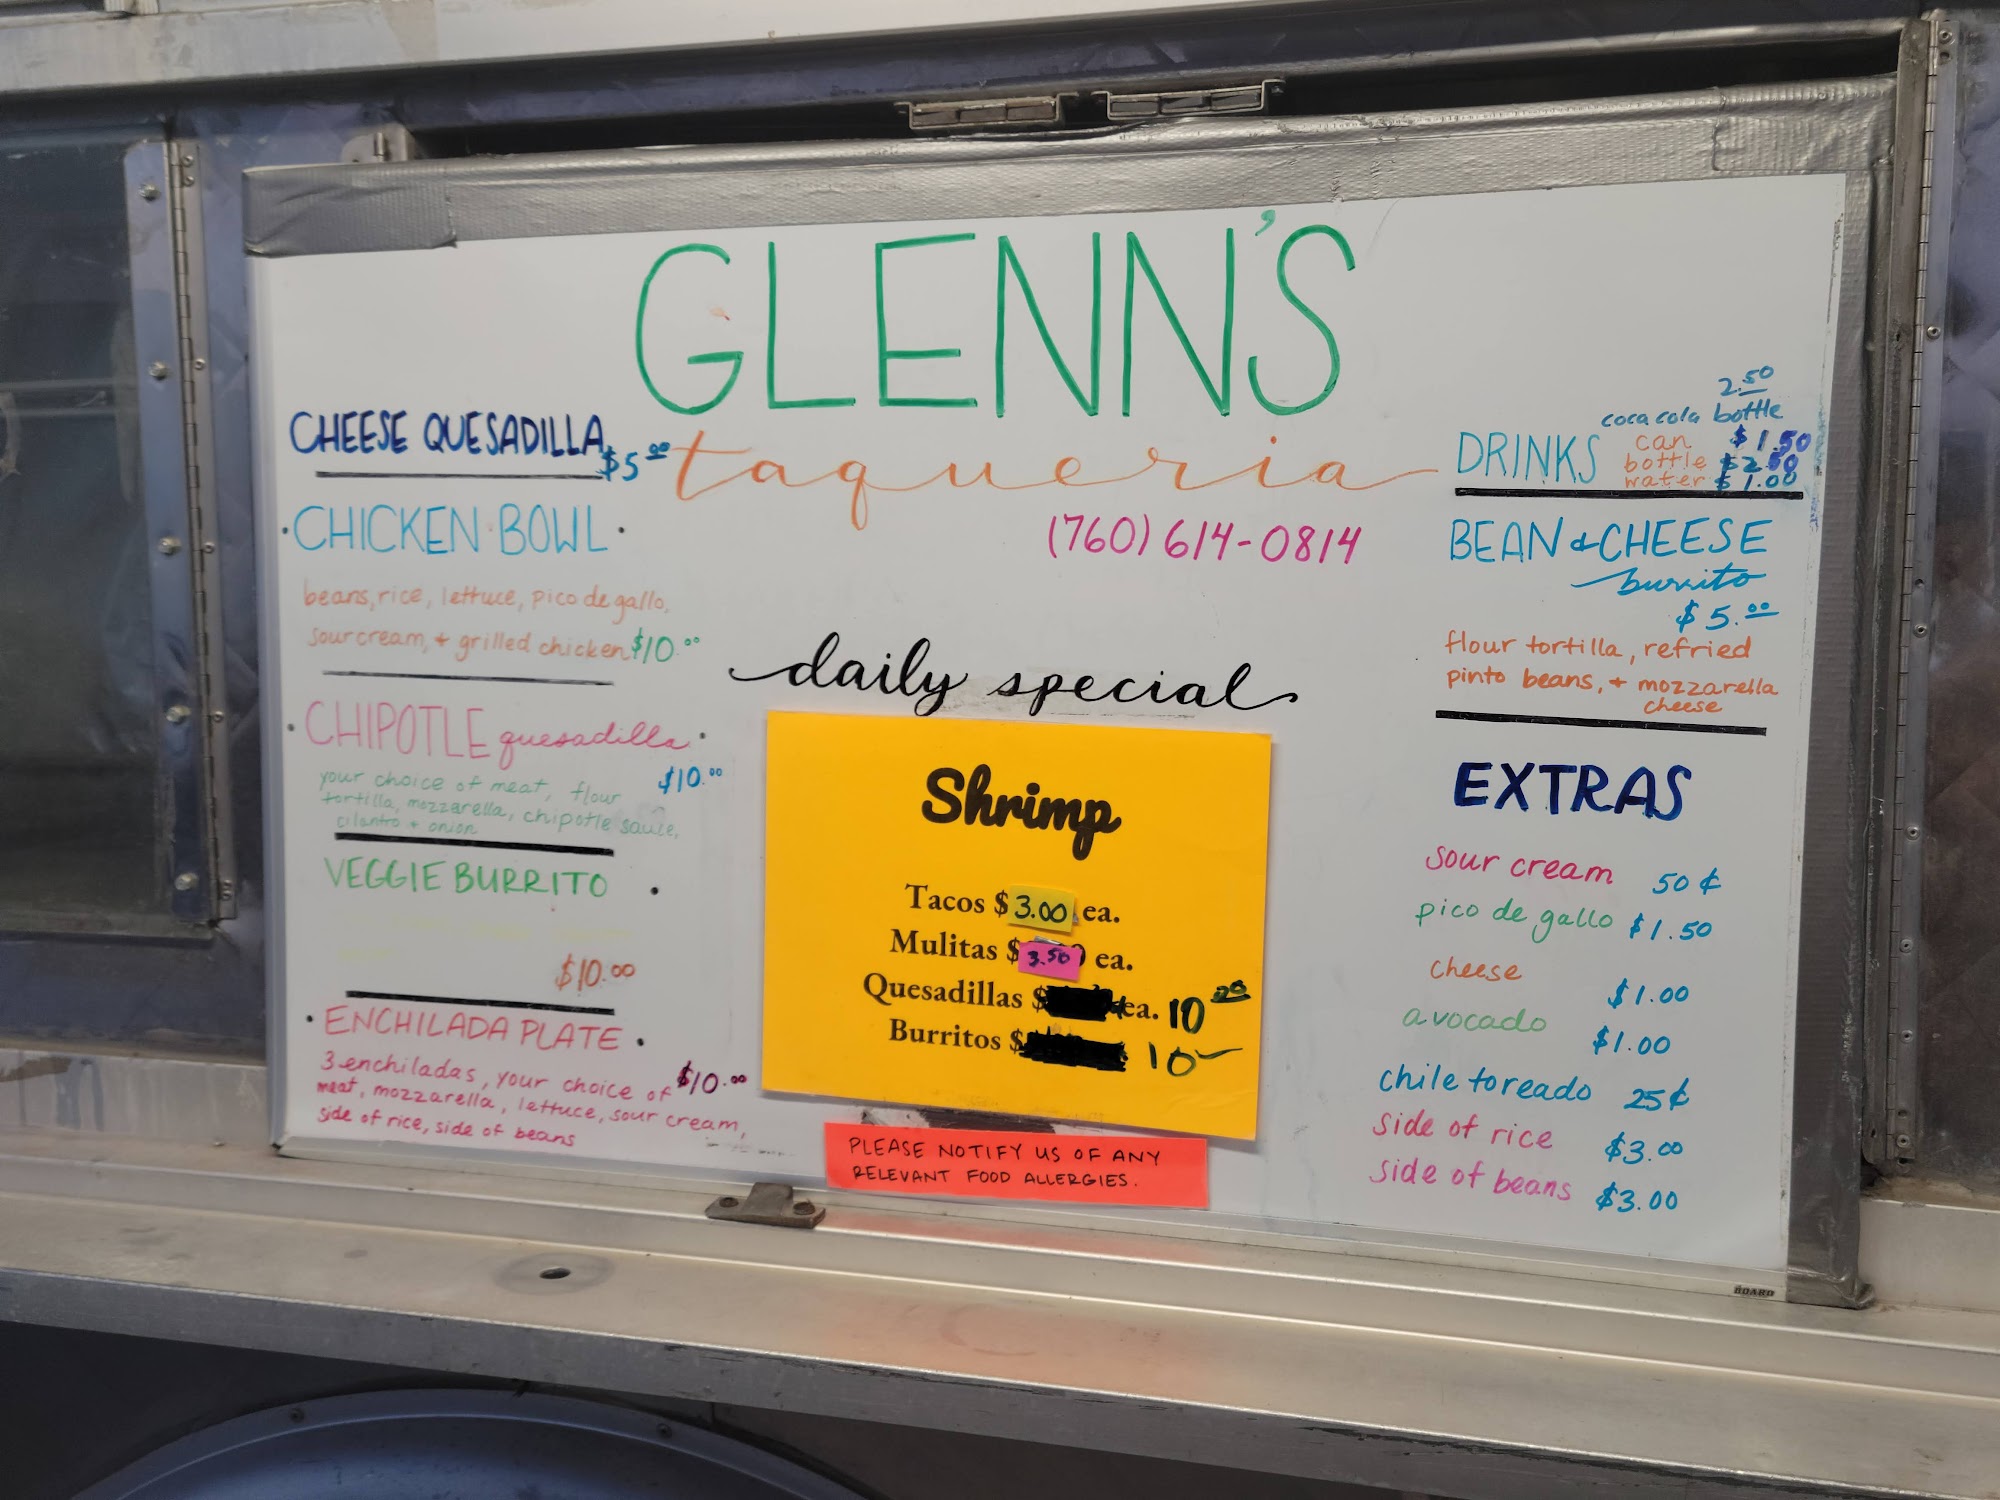 GLENN'S
taqueria
(760) 614-0814
CHEESE QUESADILLA $5.00
CHICKEN BOWL
beans, rice, lettuce, pico de gallo,
sour cream, + grilled chicken $10.00
CHIPOTLE quesadilla
your choice of meat, flour $10.00
tortilla, mozzarella, chipotle sauce,
cilantro + onion
VEGGIE BURRITO
$10.00
ENCHILADA PLATE
3 enchiladas, your choice of $10.00
meat, mozzarella, lettuce, sour cream,
side of rice, side of beans
daily special
Shrimp
Tacos $3.00 ea.
Mulitas $3.50 ea.
Quesadillas $ ea. 10.00
Burritos $ 10
PLEASE NOTIFY US OF ANY
RELEVANT FOOD ALLERGIES.
2.50
coca cola bottle
DRINKS can $1.50
bottle $2.50
water $1.00
BEAN & CHEESE
burrito
$5.00
flour tortilla, refried
pinto beans, + mozzarella
cheese
EXTRAS
sour cream 50¢
pico de gallo $1.50
cheese $1.00
avocado $1.00
chile toreado 25¢
side of rice $3.00
side of beans $3.00
BOARD